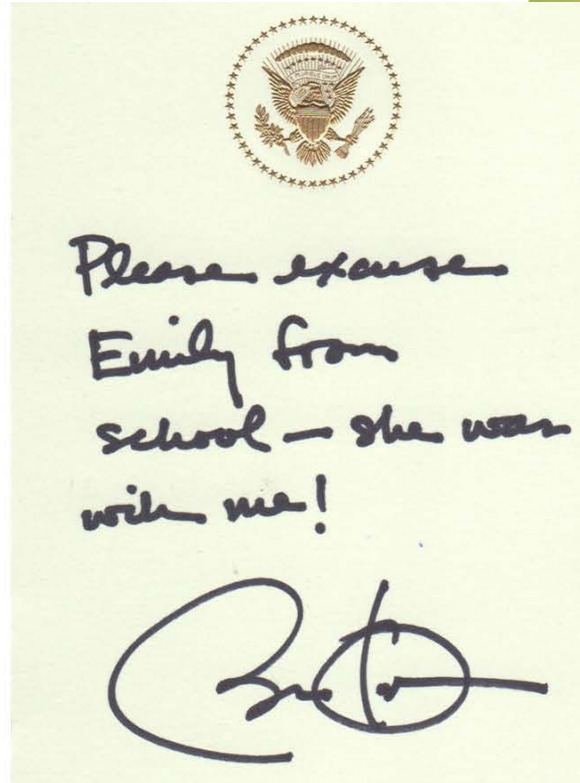 Please excuse
Emily from
school — she was
with me!